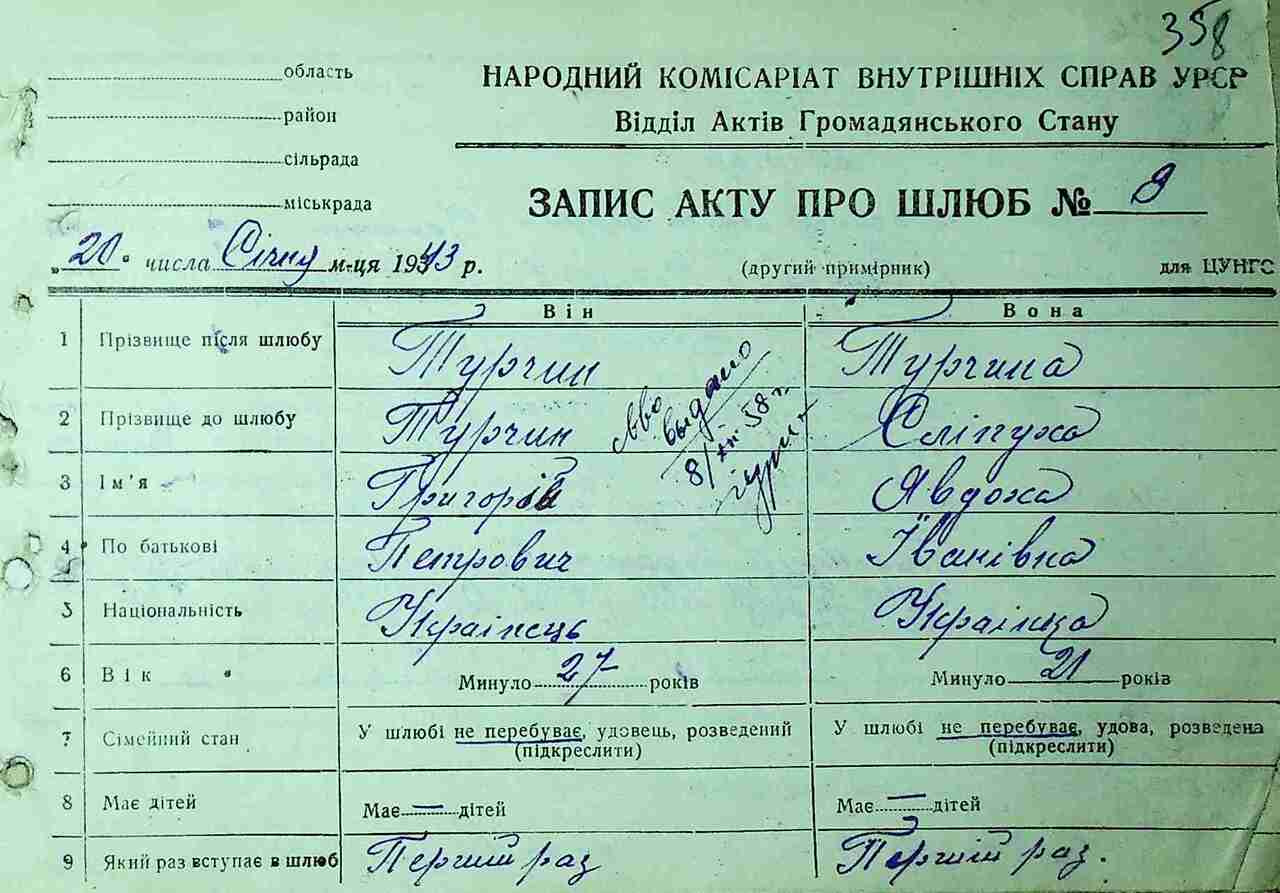 358
область
район
сільрада
міськрада
НАРОДНИЙ КОМІСАРІАТ ВНУТРІШНІХ СПРАВ УРСР
Відділ Актів Громадянського Стану
ЗАПИС АКТУ ПРО ШЛЮБ № 9
„20“ числа Січня м-ця 1943 р.
(другий примірник) для ЦУНГС
Він Вона
1 Прізвище після шлюбу Турчин Турчина
2 Прізвище до шлюбу Турчин Сліпуха
выдано
8/XII 58 г.
3 Ім'я Григорій Явдоха
4 По батькові Петрович Іванівна
5 Національність Українець Українка
6 Вік Минуло 27 років Минуло 21 років
7 Сімейний стан У шлюбі не перебуває, удовець, розведений У шлюбі не перебуває, удова, розведена
(підкреслити) (підкреслити)
8 Має дітей Має — дітей Має — дітей
9 Який раз вступає в шлюб Перший раз Перший раз.